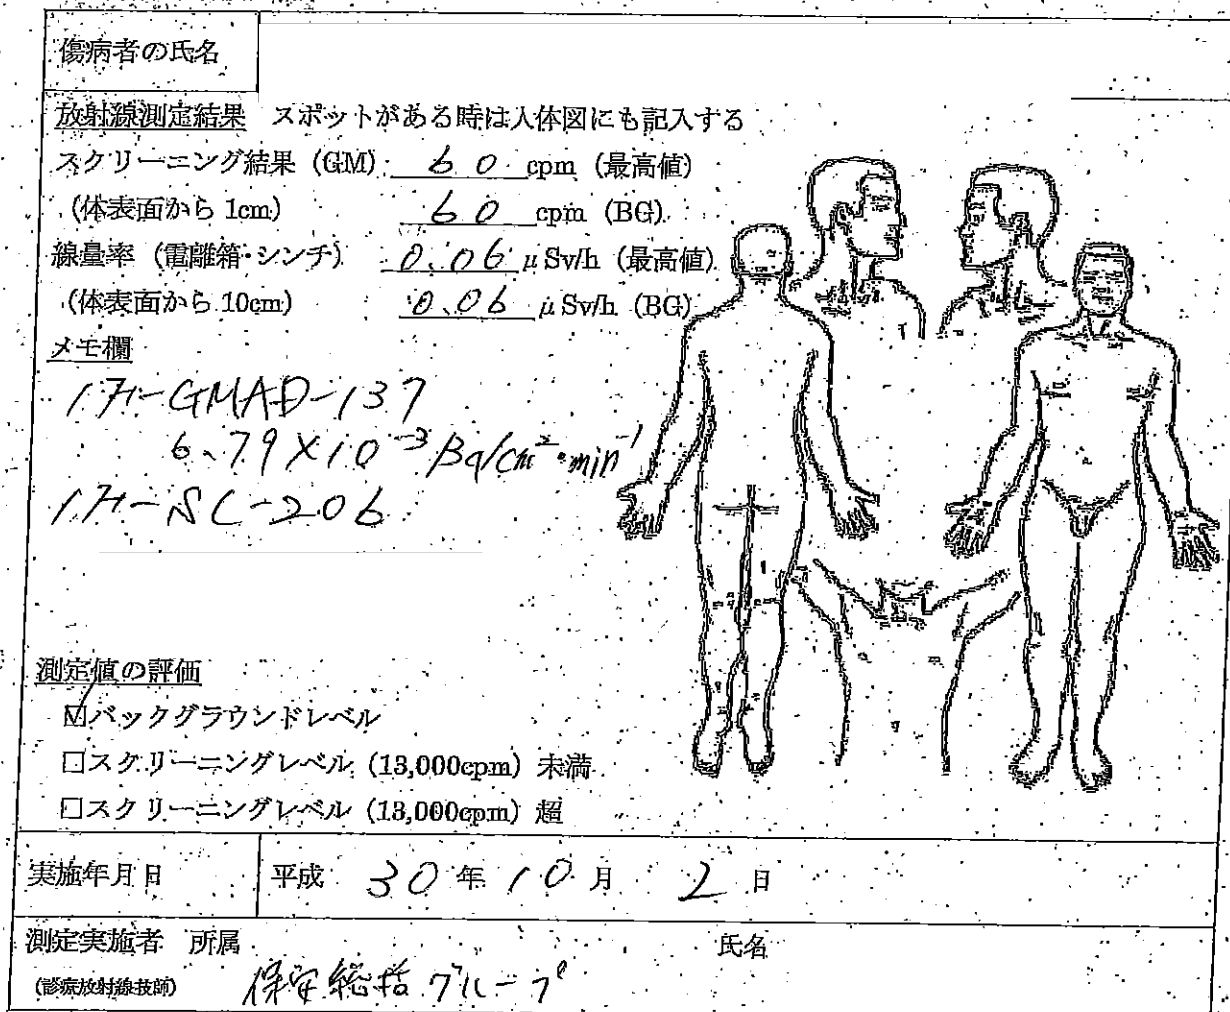 傷病者の氏名
放射線測定結果 スポットがある時は人体図にも記入する
スクリーニング結果 (GM) 60 cpm (最高値)
(体表面から 1cm) 60 cpm (BG)
線量率 (電離箱・シンチ) 0.06 μSv/h (最高値)
(体表面から 10cm) 0.06 μSv/h (BG)
メモ欄
1F-GMAD-137
6.79×10⁻³ Bq/cm²・min⁻¹
1F-SC-206
測定値の評価
☑バックグラウンドレベル
□スクリーニングレベル (13,000cpm) 未満
□スクリーニングレベル (13,000cpm) 超
実施年月日 平成 30 年 10 月 2 日
測定実施者 所属 氏名
(診療放射線技師) 保安総括グループ